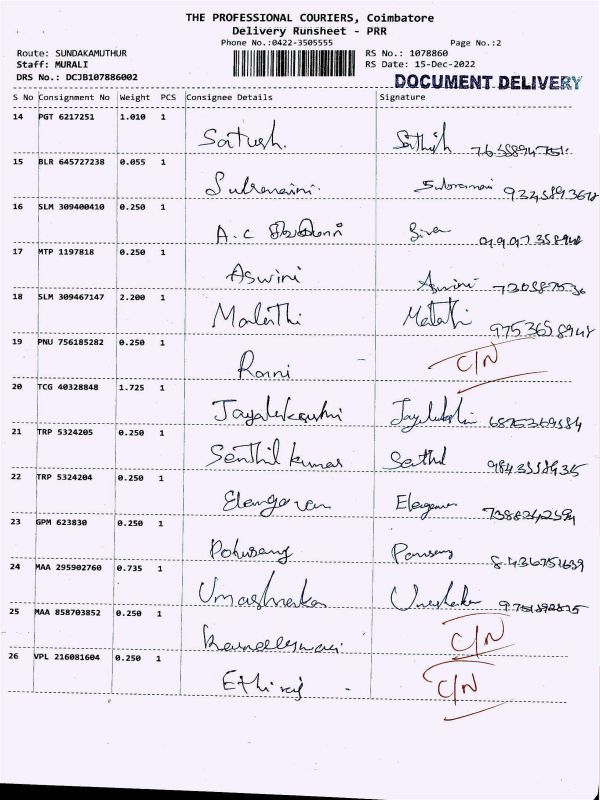 THE PROFESSIONAL COURIERS, Coimbatore
Delivery Runsheet - PRR
Phone No.:0422-3505555
Page No.:2
Route: SUNDAKAMUTHUR
RS No.: 1078860
Staff: MURALI
RS Date: 15-Dec-2022
DRS No.: DCJB107886002
DOCUMENT DELIVERY
S No Consignment No Weight PCS Consignee Details Signature
14 PGT 6217251 1.010 1 Satush. Sathish
15 BLR 645727238 0.055 1
16 SLM 309400410 0.250 1 A.C Siva
17 MTP 1197818 0.250 1 Aswini Aswini
18 SLM 309467147 2.200 1 Malathi 9753658948
19 PNU 756185282 0.250 1 Ranni C/N
20 TCG 40328848 1.725 1
21 TRP 5324205 0.250 1 Senthil kumar
22 TRP 5324204 0.250 1 Elangovan
23 GPM 623830 0.250 1
24 MAA 295902760 0.735 1
25 MAA 858703852 0.250 1 C/N
26 VPL 216081604 0.250 1 Ethiraj - C/N